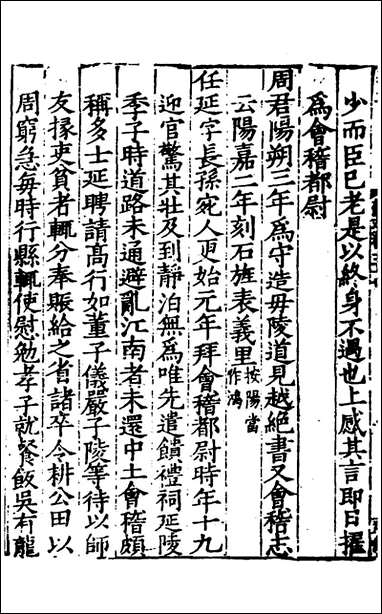 少而臣已老是以終身不遇也上感其言即日擢
爲會稽都尉
周君陽朔三年爲守造毋陵道見越絕書又會稽志
云陽嘉二年刻石旌表義里按陽當作鴻
任延字長孫宛人更始元年拜會稽都尉時年十九
迎官驚其壯及到靜泊無爲唯先遣饋禮祠延陵
季子時道路未通避亂江南者未還中土會稽頗
稱多士延聘請髙行如董子儀嚴子陵等待以師
友掾吏貧者輒分奉賑給之省諸卒令耕公田以
周窮急每時行縣輒使慰勉孝子就餐飯吳有龍